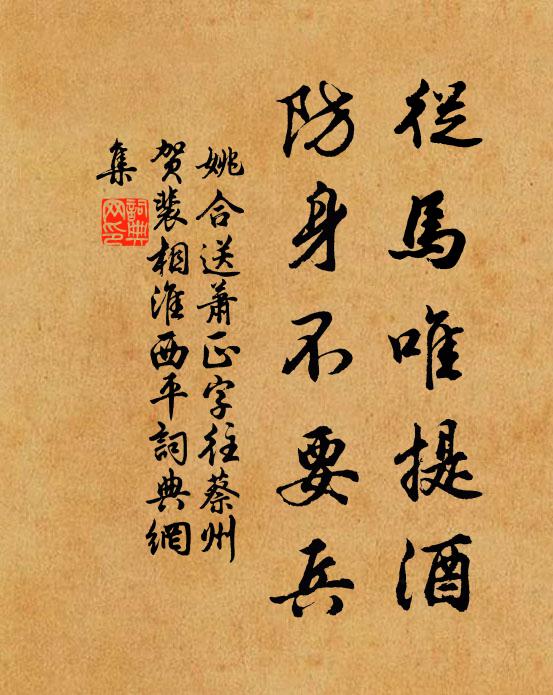 從馬唯提酒
防身不要兵
姚合送蕭正字往蔡州
賀裴相淮西平詞典網
集
詞典網印